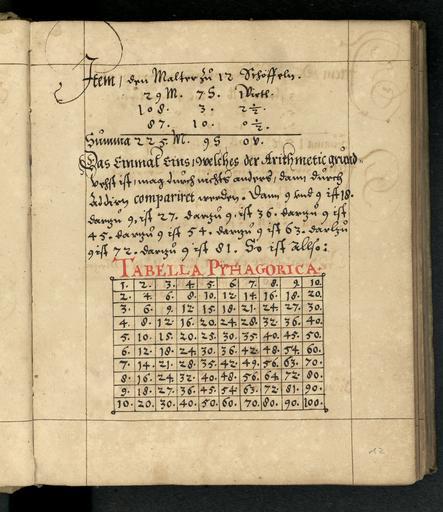 Item, den Malter zů 12 Schöffeln.
29 M. 7 S. 1 Virtl.
108. 3. 2½.
87. 10. 0½.
Summa 225 M. 9 S 0 V.
Das Einmal Eins, welches der Arithmetic grund
vest ist, mag durch nichts anders, dann durch
Addirn compariret werden. Dann 9 vnd 9 ist 18.
darzů 9, ist 27. darzů 9, ist 36. darzů 9 ist
45. darzů 9 ist 54. darzů 9 ist 63. darzů
9 ist 72. darzů 9 ist 81. So ist Allso:
TABELLA PYHAGORICA.
1. 2. 3. 4. 5. 6. 7. 8. 9. 10.
2. 4. 6. 8. 10. 12. 14. 16. 18. 20.
3. 6. 9. 12. 15. 18. 21. 24. 27. 30.
4. 8. 12. 16. 20. 24. 28. 32. 36. 40.
5. 10. 15. 20. 25. 30. 35. 40. 45. 50.
6. 12. 18. 24. 30. 36. 42. 48. 54. 60.
7. 14. 21. 28. 35. 42. 49. 56. 63. 70.
8. 16. 24. 32. 40. 48. 56. 64. 72. 80.
9. 18. 27. 36. 45. 54. 63. 72. 81. 90.
10. 20. 30. 40. 50. 60. 70. 80. 90. 100.
12